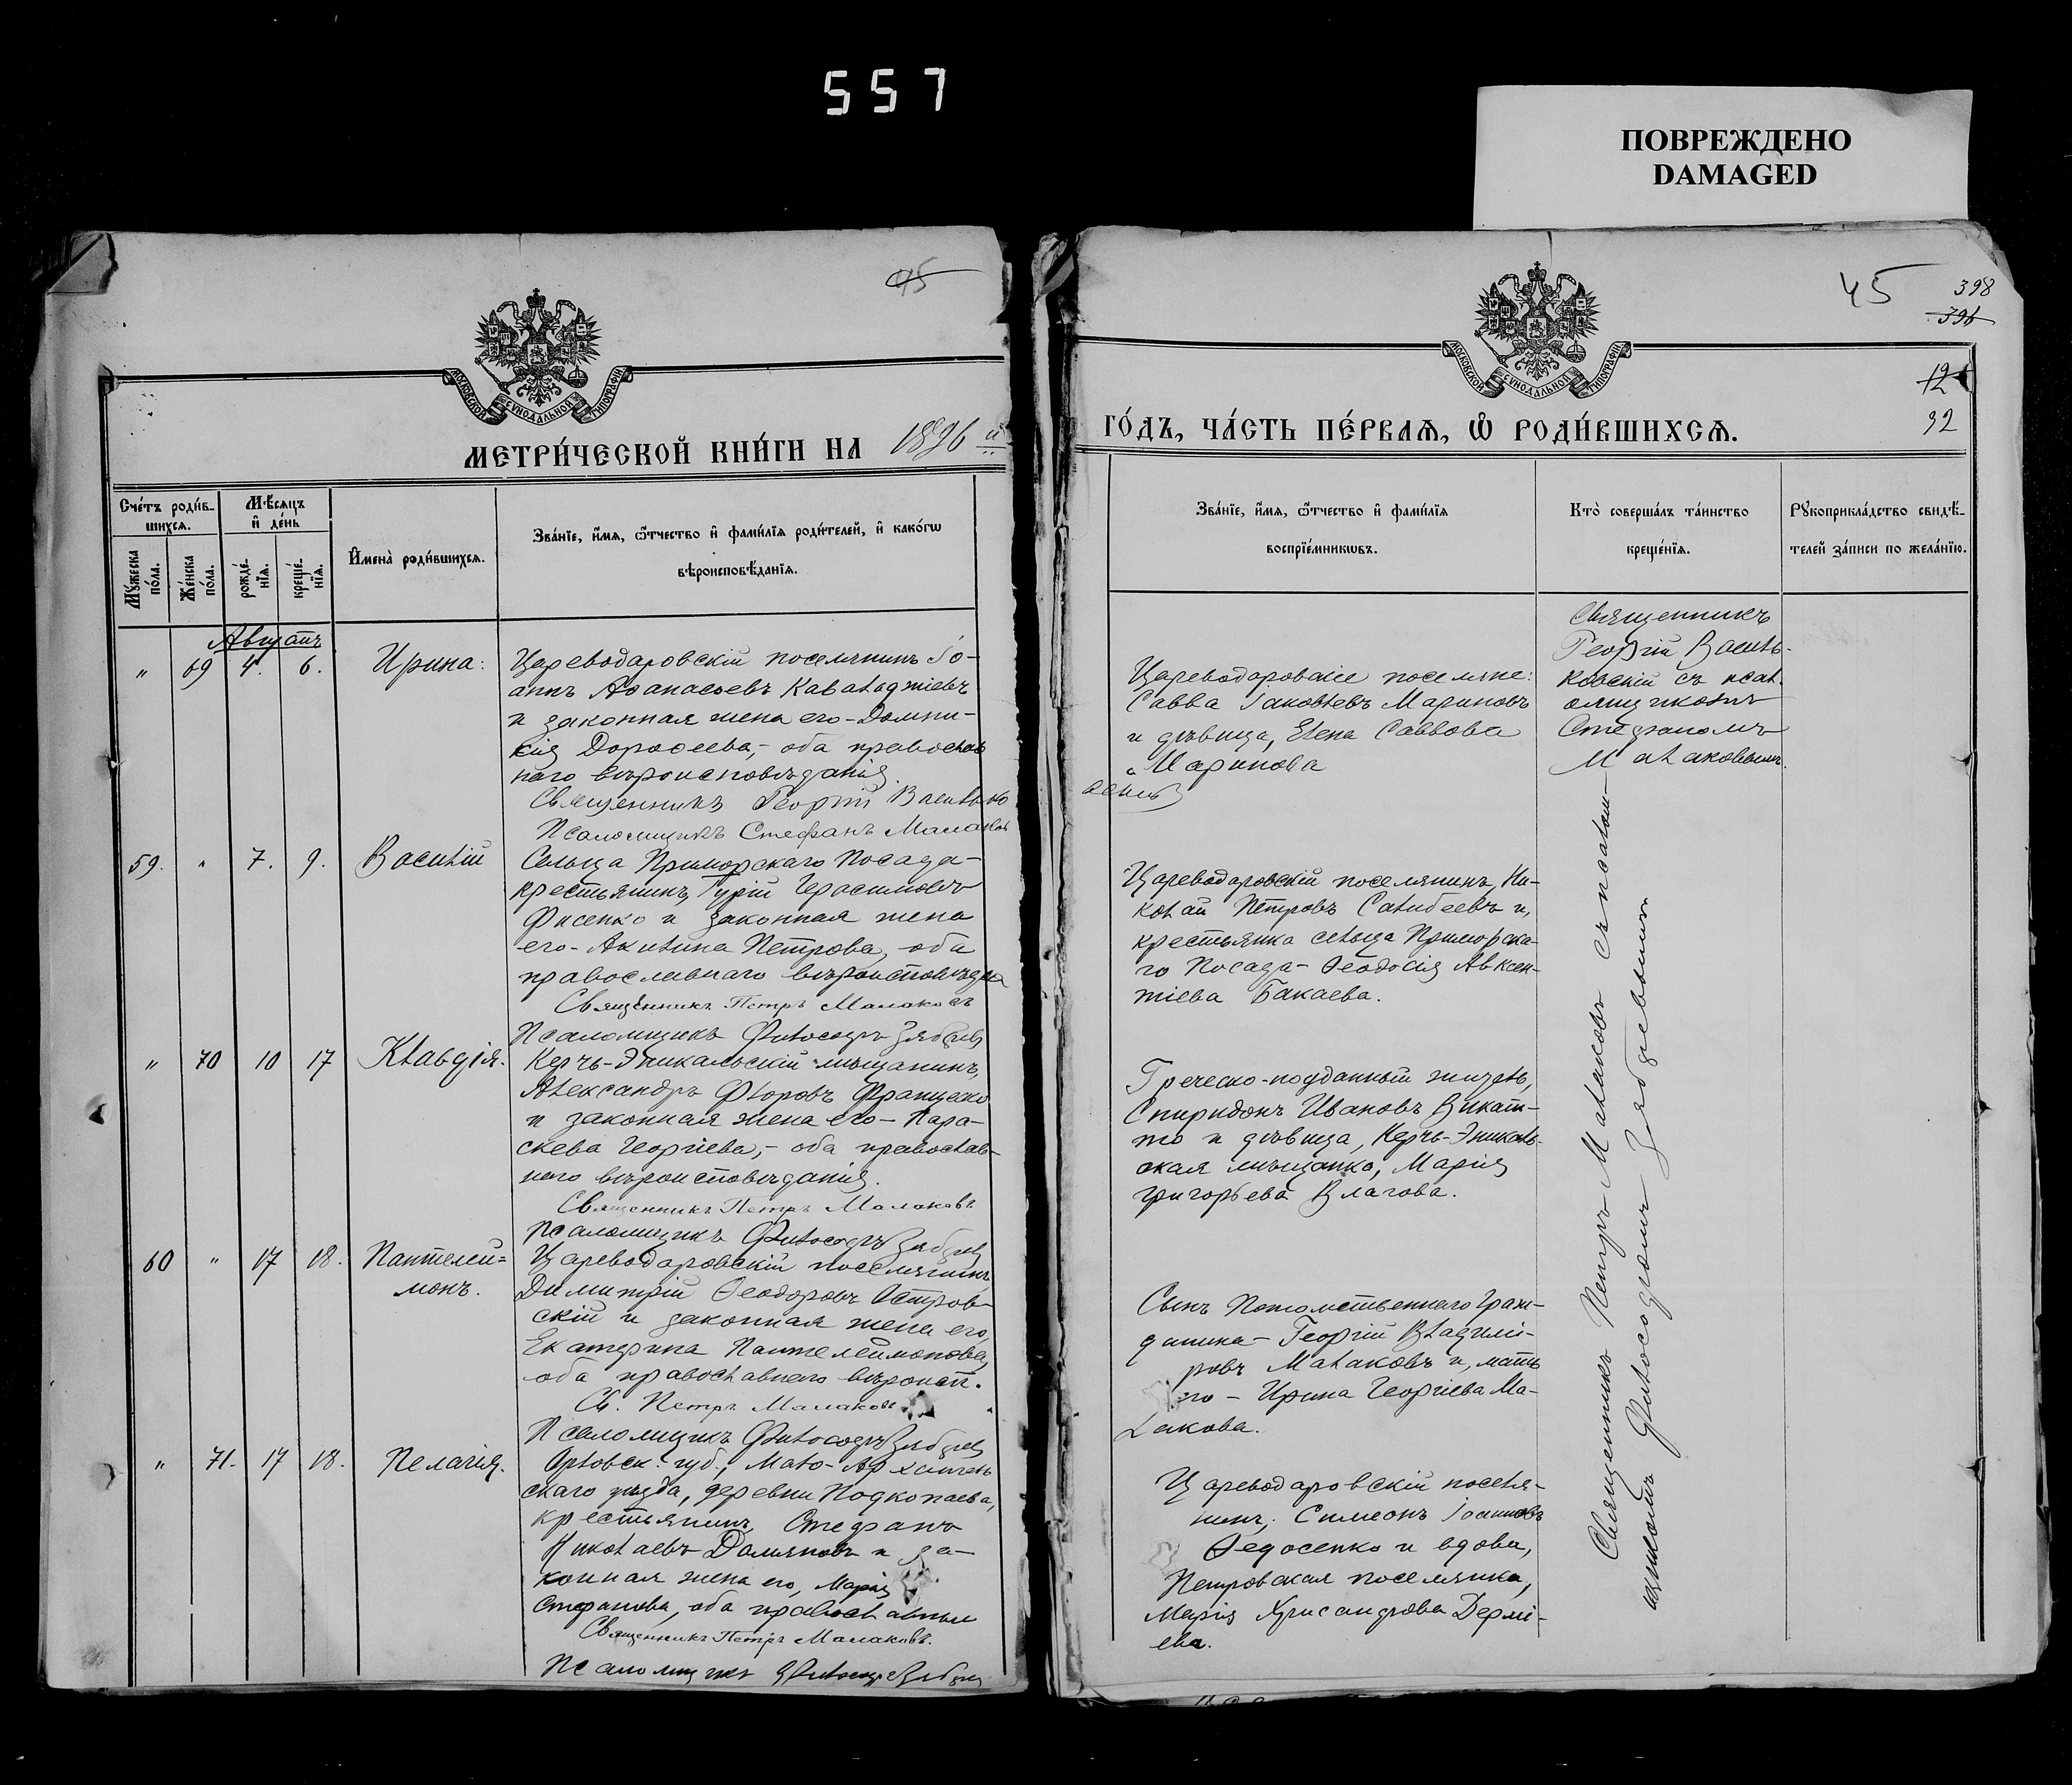 557
ПОВРЕЖДЕНО
DAMAGED
45
МОСКОВСКОЙ СѴНОДАЛЬНОЙ ТИПОГРАФІИ
МЕТРИ́ЧЕСКОЙ КНИ́ГИ НА 1896 й
Сче́тъ роди́в-
шихся.
Мѣ́сяцъ
и҆ де́нь
Мꙋ́жеска
по́ла.
Же́нска
по́ла.
рожде́-
нїя.
креще́-
нїя.
И҆мена̀ роди́вшихся.
Зва́нїе, и҆́мя, ѻ҆́тчество и҆ фами́лїя роди́телей, и҆ како́гѡ
вѣроисповѣ́данїя.
Августъ
" 69 4. 6. Ирина:
Цареводаровскій поселянинъ Іо-
аннъ Аѳанасьевъ Каваладжіевъ
и законная жена его - Домни-
кія Дороѳеева, - оба православ
наго вѣроисповѣданія.
Священникъ Георгій Василько
Псаломщикъ Стефанъ Малаков
59. " 7. 9. Василій
Сельца Приморскаго Посада -
крестьянинъ, Гурій Герасимовъ
Фисенко и законная жена
его - Акилина Петрова, - оба
православнаго вѣроисповѣдан
Священникъ Петръ Малаковъ
Псаломщикъ
" 70 10 17 Клавдія.
Керчь-Эникальскій мѣщанинъ,
Александръ Флоровъ Францеско
и законная жена его - Пара-
скева Георгіева, - оба православ-
наго вѣроисповѣданія.
Священникъ Петръ Малаковъ
Псаломщикъ
60 " 17 18. Пантелей=
монъ.
Цареводаровскій поселянинъ
Димитрій Ѳеодоровъ Остров-
скій и законная жена его,
Екатерина Пантелеймонова,
оба православнаго вѣроисп.
Св. Петръ Малаковъ
Псаломщикъ
" 71. 17 18. Пелагія.
Орловск. губ., Мало-Архангель
скаго уѣзда, деревни Подкопаева,
крестьянинъ, Стефанъ
Николаевъ Домяновъ и за-
конная жена его, Марія
Стефанова, оба православные
Священникъ Петръ Малаковъ.
Псаломщикъ
45 398
396
12
92
МОСКОВСКОЙ СѴНОДАЛЬНОЙ ТИПОГРАФІИ
ГО́ДЪ, ЧА́СТЬ ПЕ́РВАЯ, Ѡ҆ РОДИ́ВШИХСЯ.
Зва́нїе, и҆́мя, ѻ҆́тчество и҆ фами́лїя
воспрїе́мникѡвъ.
Кто̀ соверша́лъ та́инство
креще́нїя.
Рꙋкоприкла́дство свидѣ́-
телей за́писи по жела́нїю.
Цареводаровскіе поселяне:
Савва Іаковлевъ Мариновъ
и дѣвица, Елена Саввова
Маринова
Священникъ
Георгій Василь-
ковскій съ псал.
омщикомъ
Стефаномъ
Малаковымъ.
Цареводаровскій поселянинъ, Ни-
колай Петровъ Салибеевъ и,
крестьянка сельца Приморска-
го Посада - Ѳеодосія Авксен-
тіева Бакаева.
Греческо-подданный
Спиридонъ Ивановъ Викат-
то и дѣвица, Керчь-Эникаль-
ская мѣщанка, Марія
Григорьева Влагова.
Сынъ Потомственнаго Граж-
данина - Георгій Владимі-
ровъ Малаковъ и, мать
го - Ирина Георгіева Ма-
лакова.
Цареводаровскій поселя-
нинъ, Симеонъ Іоанновъ
Ѳедосенко и вдова,
Петровская поселянка,
Марія Хрисандрова Дермі-
ева.
Священникъ Петръ Малаковъ съ псалом-
щикомъ